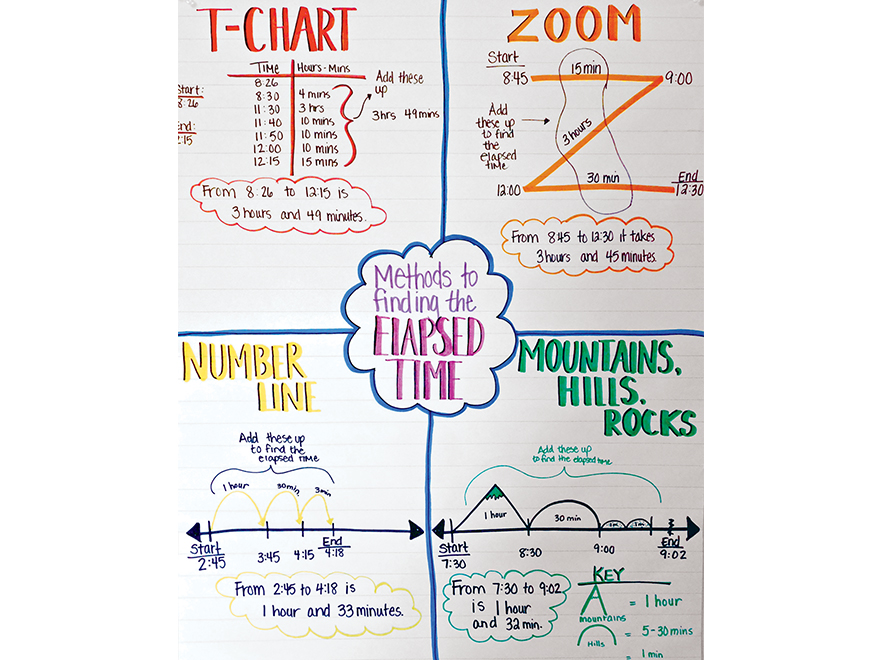 T-CHART
Time Hours-Mins
8:26
8:30 4 mins
11:30 3 hrs
11:40 10 mins
11:50 10 mins
12:00 10 mins
12:15 15 mins
Start:
8:26
End:
2:15
Add these
up
3hrs 49mins
From 8:26 to 12:15 is
3 hours and 49 minutes.
ZOOM
Start
8:45 15 min 9:00
Add
these up
to find
the
elapsed
time
3 hours
30 min
12:00
End
12:30
From 8:45 to 12:30 it takes
3 hours and 45 minutes.
Methods to
finding the
ELAPSED
TIME
NUMBER
LINE
Add these up
to find the
elapsed time
1 hour 30 min 3 min
Start
2:45 3:45 4:15
End
4:18
From 2:45 to 4:18 is
1 hour and 33 minutes.
MOUNTAINS,
HILLS,
ROCKS
Add these up
to find the elapsed time
1 hour 30 min
Start
7:30 8:30 9:00
End
9:02
From 7:30 to 9:02
is 1 hour
and 32 min.
KEY
= 1 hour
mountains
= 5-30 mins
Hills
= 1 min